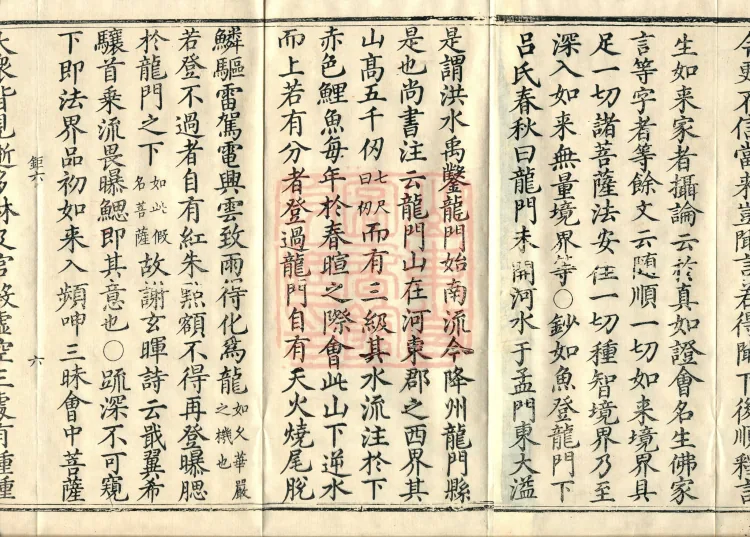 不信當来豈聞設若得聞下後順釋
生如来家者攝論云於真如證會名生佛家
言等字者等餘文云随順一切如来境界具
足一切諸菩薩法安住一切種智境界乃至
深入如来無量境界等〇鈔如魚登龍門下
呂氏春秋曰龍門未開河水于孟門東大溢
是謂洪水禹鑿龍門始南流今降州龍門縣
是也尚書注云龍門山在河東郡之西界其
山髙五千仞七尺曰仞而有三級其水流注於下
赤色鯉魚每年於春暄之際會此山下逆水
而上若有分者登過龍門自有天火燒尾脫
鱗驅雷駕電興雲致雨得化爲龍如乆華嚴之機也
若登不過者自有紅朱點額不得再登曝腮
於龍門之下如此假名菩薩故謝玄暉詩云戢翼希
驤首乗流畏曝鰓即其意也〇䟽深不可窺
下即法界品初如来入頻呻三昧會中菩薩
鉅六 六
大衆皆見逝多林及宮殿虛空三處有種種